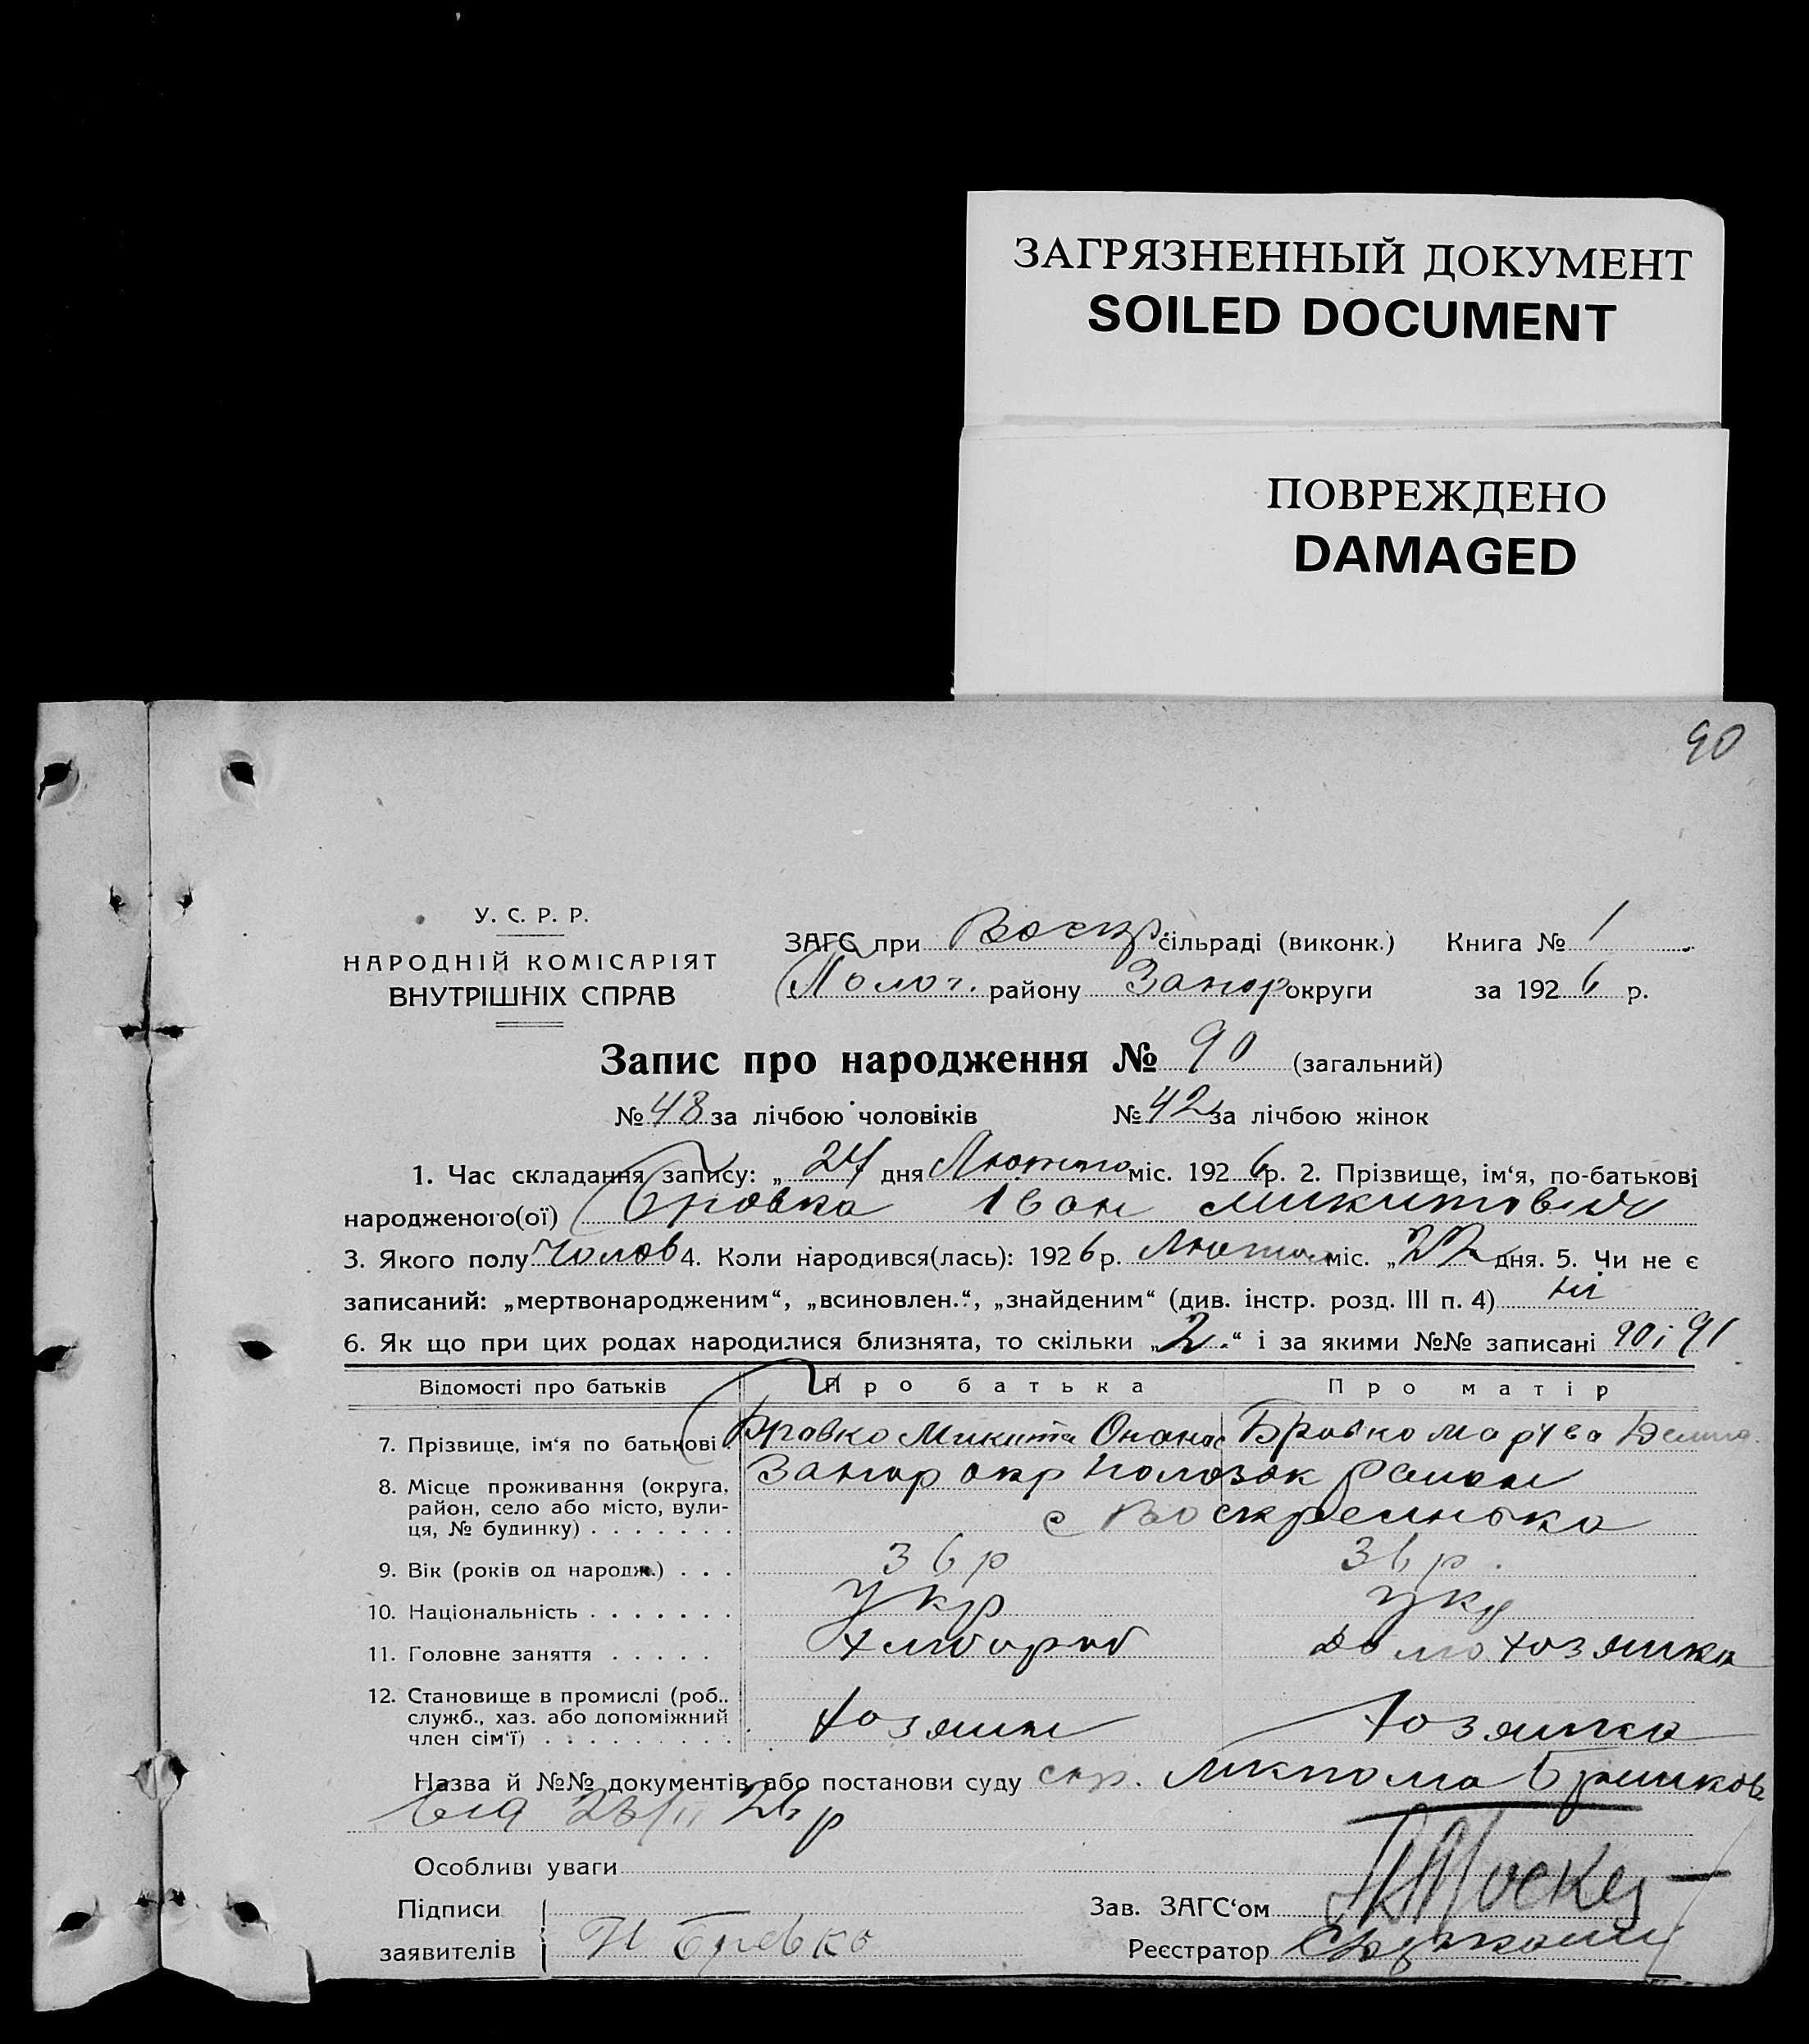 ЗАГРЯЗНЕННЫЙ ДОКУМЕНТ
SOILED DOCUMENT
ПОВРЕЖДЕНО
DAMAGED
90
У. С. Р. Р.
НАРОДНІЙ КОМІСАРІЯТ
ВНУТРІШНІХ СПРАВ
ЗАГС при Воскр. сільраді (виконк.) Книга № 1
Полог. району Запор округи за 1926 р.
Запис про народження № 90 (загальний)
№ 48 за лічбою чоловіків № 42 за лічбою жінок
1. Час складання запису: „ 24 дня Лютого міс. 1926 р. 2. Прізвище, ім‘я, по-батькові
народженого(ої) Бровка Іван Микитович
3. Якого полу Чолов 4. Коли народився(лась): 1926 р. Лютого міс. „22 дня. 5. Чи не є
записаний: „мертвонародженим“, „всиновлен.“, „знайденим“ (див. інстр. розд. III п. 4) ні
6. Як що при цих родах народилися близнята, то скільки „2.“ і за якими №№ записані 90 і 91
Відомості про батьків Про батька Про матір
7. Прізвище, ім‘я по батькові Бровко Микита Онанас Бровко
8. Місце проживання (округа, район, село або місто, вулиця, № будинку) Запор окр район
с Воскресенка
9. Вік (років од народж.) 36 р 36 р.
10. Національність Укр Укр
11. Головне заняття Хлібороб Домохозяйка
12. Становище в промислі (роб., служб., хаз. або допоміжний член сім‘ї) Хозяин Хозяйка
Назва й №№ документів або постанови суду спр.
від 23/II 26 р
Особливі уваги
Підписи
заявителів Н Бровко
Зав. ЗАГС‘ом
Реєстратор